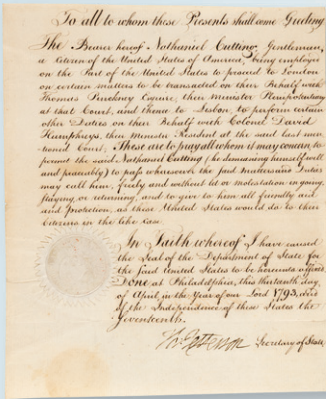 To all to whom these Presents shall come Greeting
The Bearer hereof Nathaniel Cutting, Gentleman,
a Citizen of the United States of America, being employed
on the Part of the United States to proceed to London
on certain matters to be transacted on their Behalf with
Thomas Pinckney Esquire, their Minister Plenipotentiary
at that Court, and thence to Lisbon, to perform certain
other Duties on their Behalf with Colonel David
Humphreys, their Minister Resident at the said last men
tioned Court; These are to pray all whom it may concern, to
permit the said Nathaniel Cutting (he demeaning himself well
and peaceably) to pass wheresoever the said Matters and Duties
may call him, freely and without let or molestation in going,
staying or returning, and to give to him all friendly aid
and Protection, as these United States would do to their
Citizens in the like Case.
In Faith whereof I have caused
the Seal of the Department of State for
the said United States to be hereunto affixed
Done at Philadelphia, this thirteenth day
of April in the Year of our Lord 1793, and
of the Independence of these States the
Seventeenth.
Th: Jefferson Secretary of State